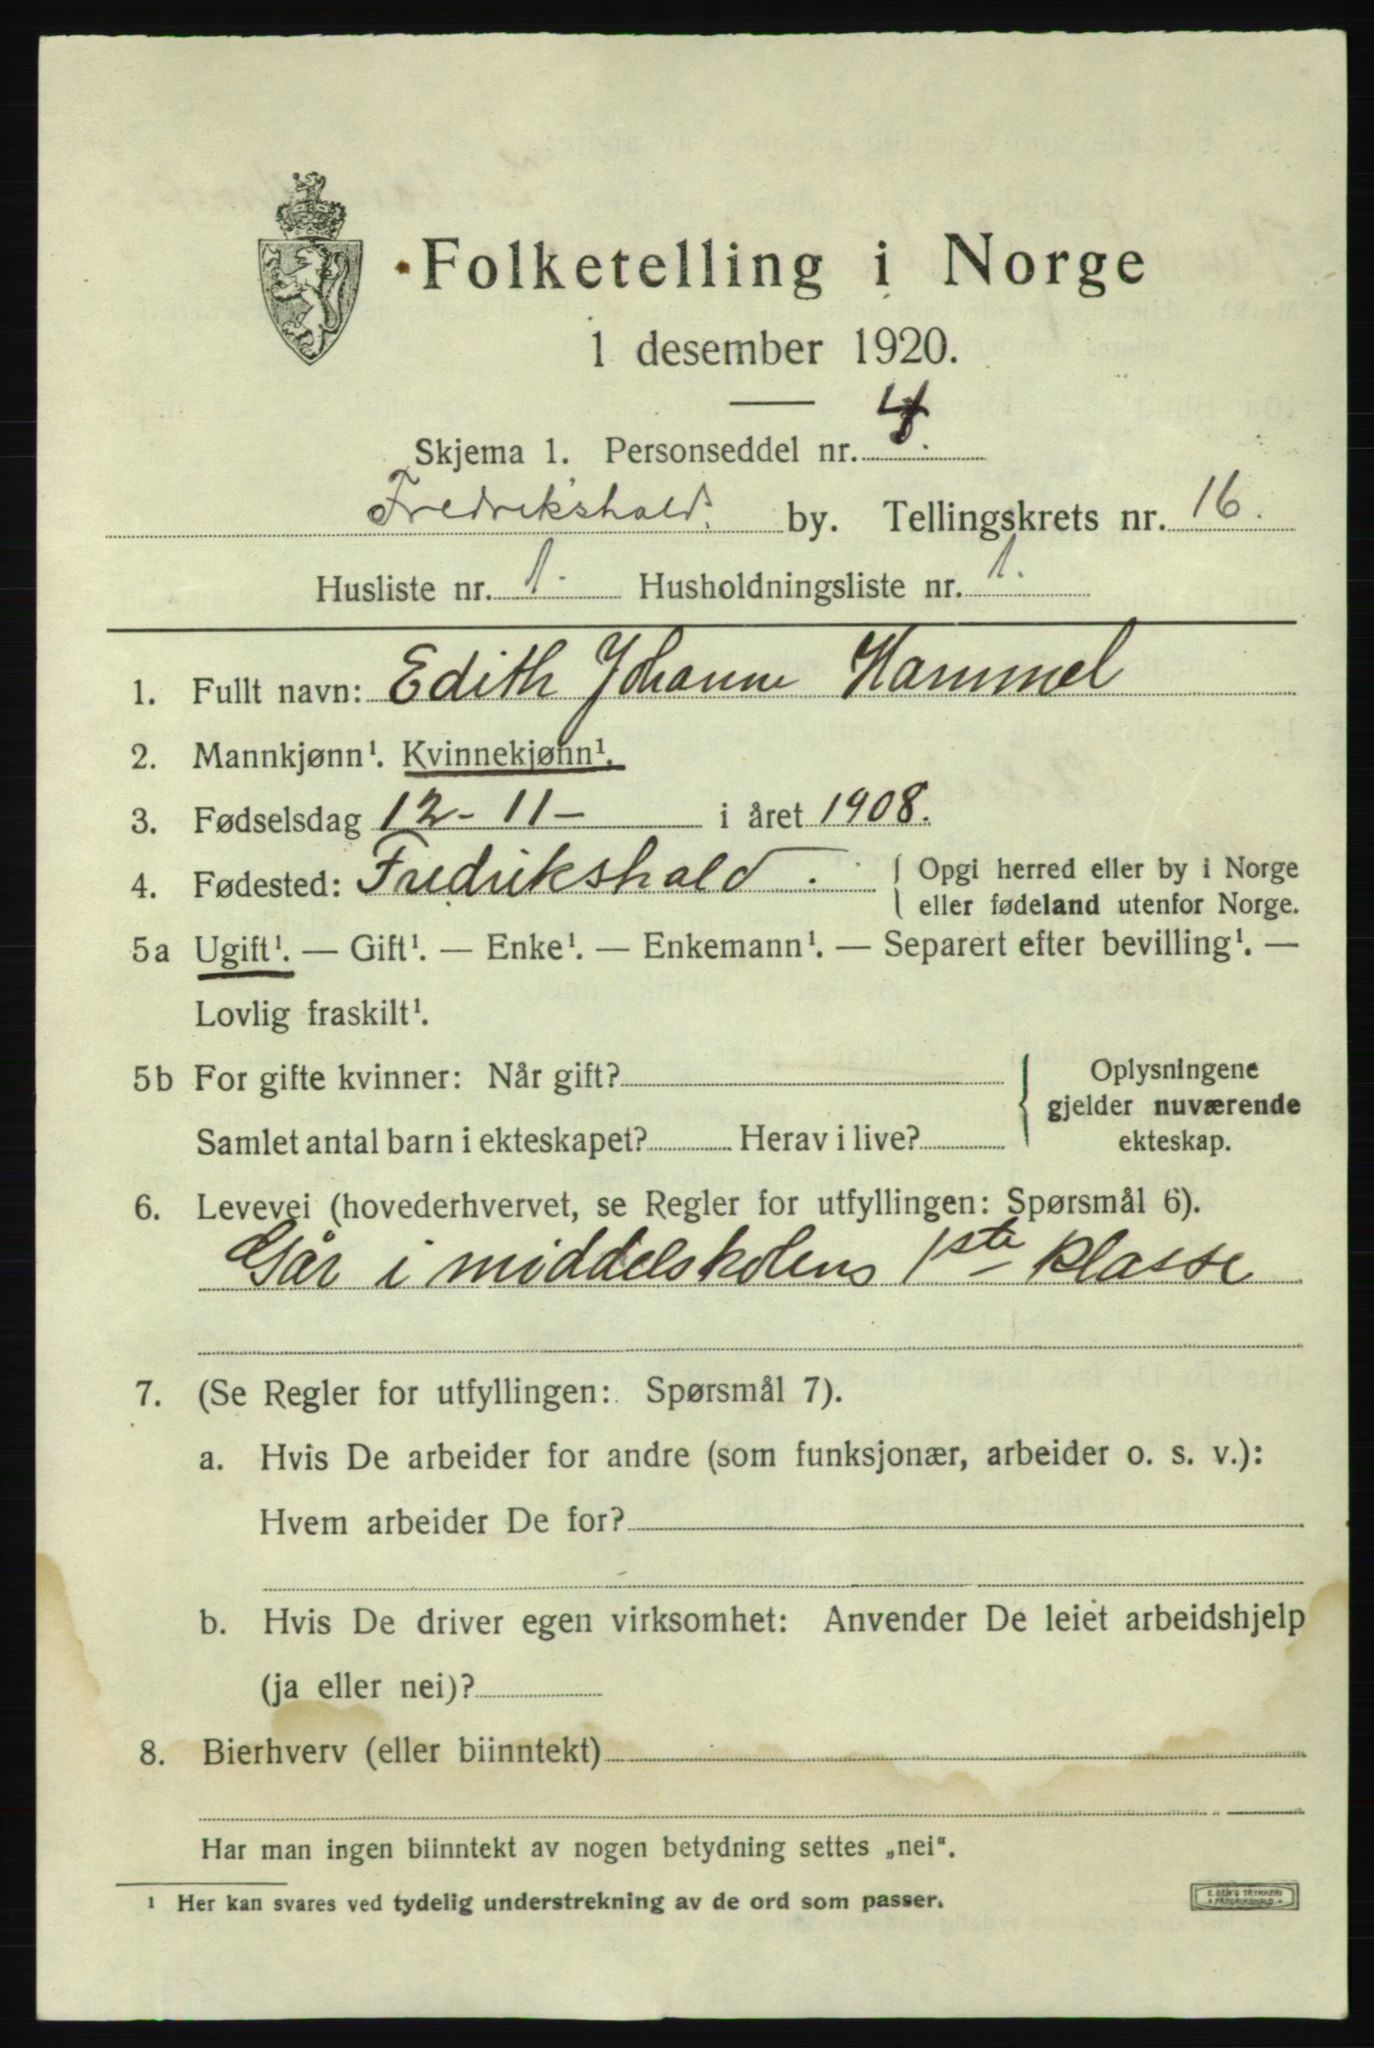 Folketelling i Norge
1 desember 1920.
Skjema 1. Personseddel nr. 4.
Fredrikshald. by. Tellingskrets nr. 16.
Husliste nr. 1. Husholdningsliste nr. 1.
1. Fullt navn: Edith Johanne Hammel
2. Mannkjønn¹. Kvinnekjønn¹.
3. Fødselsdag 12-11- i året 1908.
4. Fødested: Fredrikshald. { Opgi herred eller by i Norge
eller fødeland utenfor Norge.
5a Ugift¹. — Gift¹. — Enke¹. — Enkemann¹. — Separert efter bevilling¹. —
Lovlig fraskilt¹.
5b For gifte kvinner: Når gift? { Oplysningene
gjelder nuværende
Samlet antal barn i ekteskapet? Herav i live? ekteskap.
6. Levevei (hovederhvervet, se Regler for utfyllingen: Spørsmål 6).
Går i middelskolens 1ste klasse
7. (Se Regler for utfyllingen: Spørsmål 7).
a. Hvis De arbeider for andre (som funksjonær, arbeider o. s. v.):
Hvem arbeider De for?
b. Hvis De driver egen virksomhet: Anvender De leiet arbeidshjelp
(ja eller nei)?
8. Bierhverv (eller biinntekt)
Har man ingen biinntekt av nogen betydning settes „nei“.
¹ Her kan svares ved tydelig understrekning av de ord som passer.